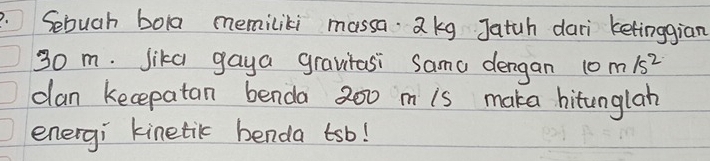 2. Sebuah bola memiliki massa. 2 kg Jatuh dari ketinggian
30 m. Jika gaya gravitasi sama dengan 10 m/s²
dan kecepatan benda 200 m/s maka hitunglah
energi kinetik benda tsb!